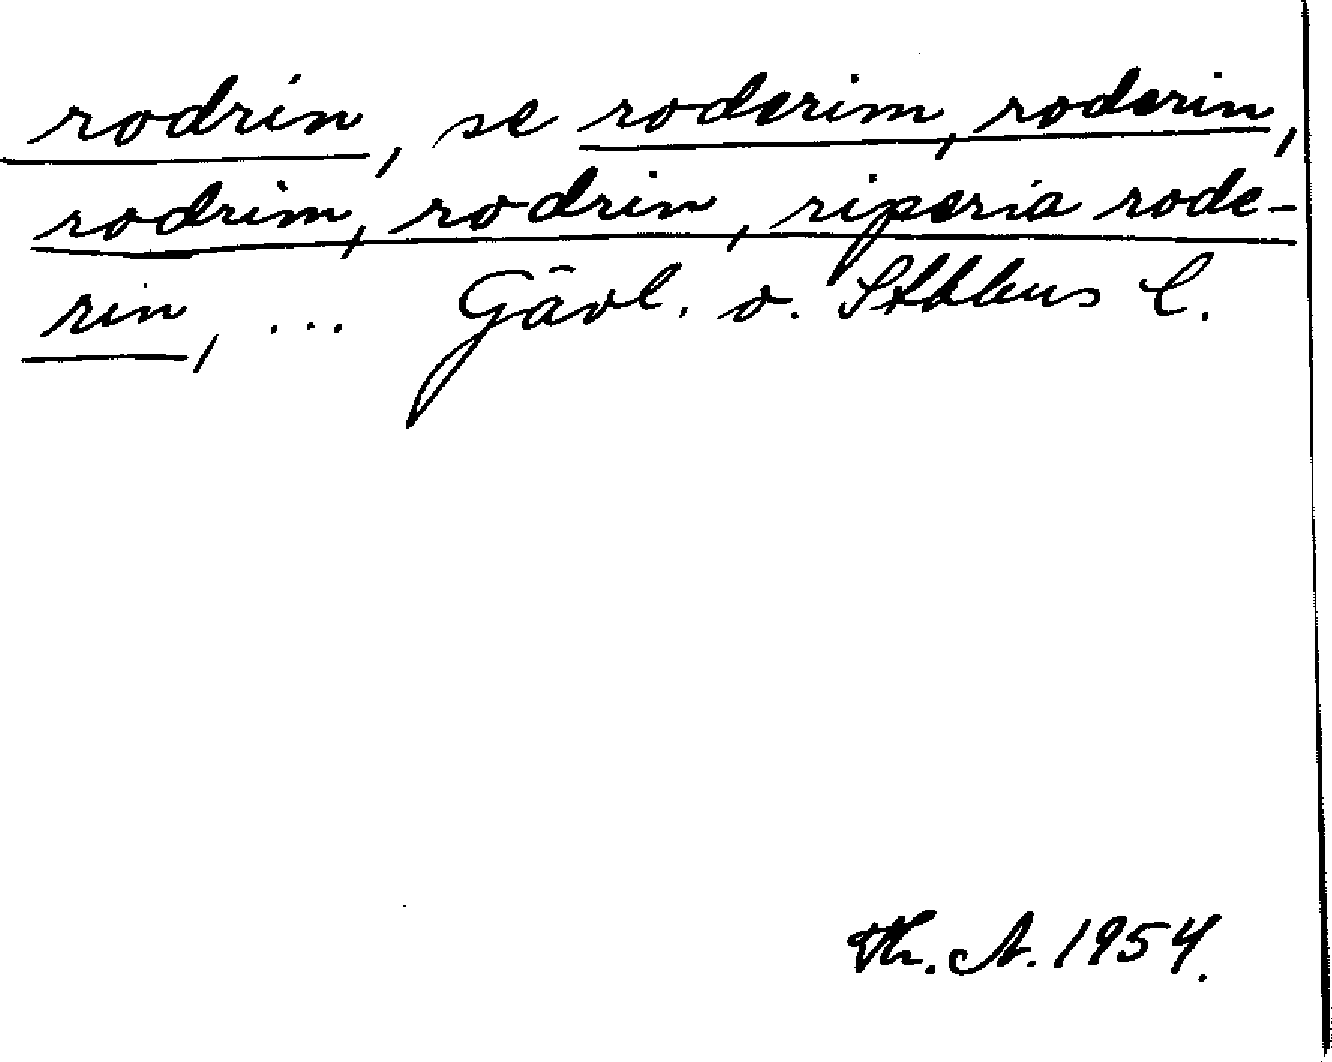 rodrin, se roderim, roderin,
rodrim, rodrin, riperia rode-
rin, ... Gävl. o. Sthlms l.
Th. A. 1954.